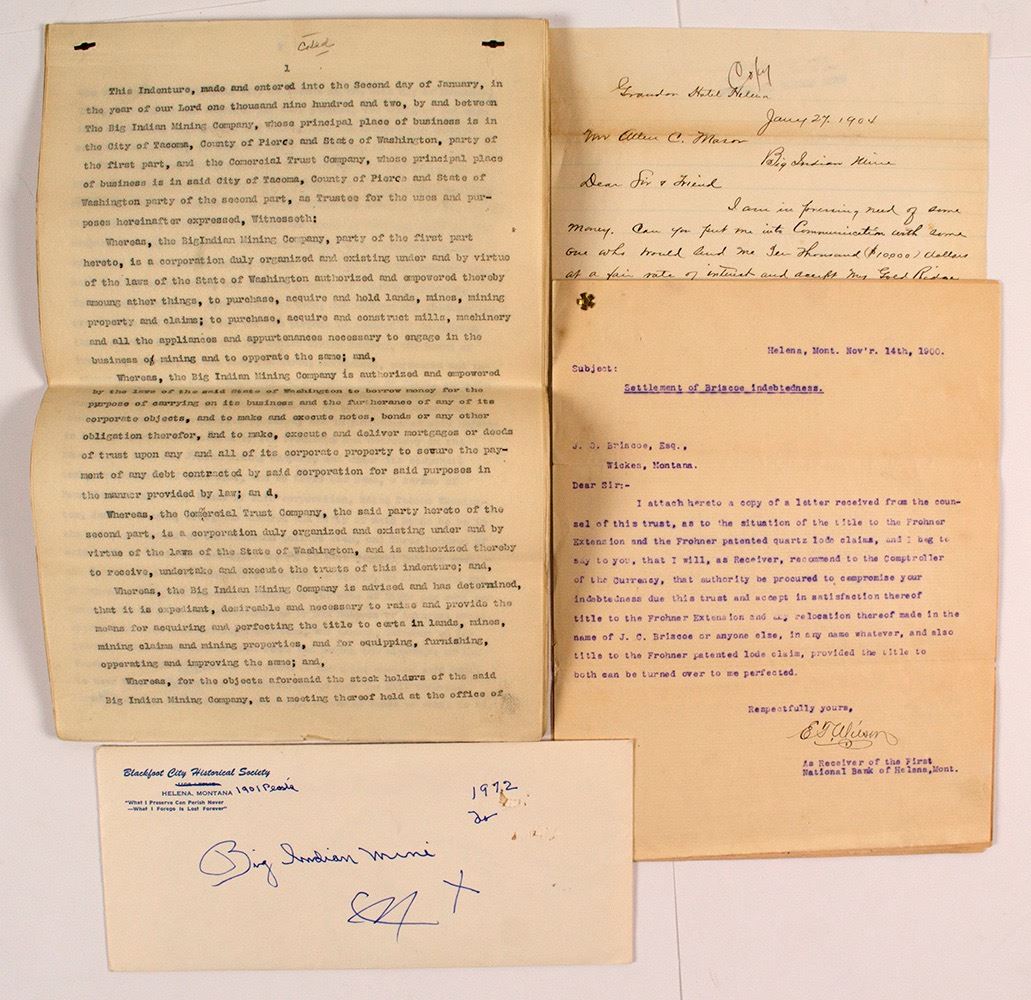 Coled
1
This Indenture, made and entered into the Second day of January, in
the year of our Lord one thousand nine hundred and two, by and between
The Big Indian Mining Company, whose principal place of business is in
the City of Tacoma, County of Pierce and State of Washington, party of
the first part, and the Comercial Trust Company, whose principal place
of business is in said City of Tacoma, County of Pierce and State of
Washington party of the second part, as Trustee for the uses and pur-
poses hereinafter expressed, Witnesseth:
Whereas, the BigIndian Mining Company, party of the first part
hereto, is a corporation duly organized and existing under and by virtue
of the laws of the State of Washington authorized and empowered thereby
amoung ather things, to purchase, acquire and hold lands, mines, mining
property and claims; to purchase, acquire and construct mills, machinery
and all the appliances and appurtenances necessary to engage in the
business of mining and to opperate the same; and,
Whereas, the Big Indian Mining Company is authorized and empowered
by the laws of the said State of Washington to borrow money for the
purpose of carrying on its business and the furtherance of any of its
corporate objects, and to make and execute notes, bonds or any other
obligation therefor, and to make, execute and deliver mortgages or deeds
of trust upon any and all of its corporate property to secure the pay-
ment of any debt contracted by said corporation for said purposes in
the manner provided by law; an d,
Whereas, the Comercial Trust Company, the said party hereto of the
second part, is a corporation duly organized and existing under and by
virtue of the laws of the State of Washington, and is authorized thereby
to receive, undertake and execute the trusts of this indenture; and,
Whereas, the Big Indian Mining Company is advised and has determined,
that it is expediant, desireable and necessary to raise and provide the
means for acquiring and perfecting the title to certa in lands, mines,
mining claims and mining properties, and for equipping, furnishing,
opperating and improving the same; and,
Whereas, for the objects aforesaid the stock holders of the said
Big Indian Mining Company, at a meeting thereof held at the office of
Copy
Grandon Hotel Helena
Jany 27. 1904
Mr Allen C. Mason
Big Indian Mine
Dear Sir & Friend
I am in pressing need of some
money. Can you put me into Communication with some
one who would lend me Ten Thousand ($10,000) dollars
at a fair rate of interest and accept my Gold Ridge
Helena, Mont. Nov'r. 14th, 1900.
Subject:
Settlement of Briscoe indebtedness.
J. C. Briscoe, Esq.,
Wickes, Montana.
Dear Sir:-
I attach hereto a copy of a letter received from the coun-
sel of this trust, as to the situation of the title to the Frohner
Extension and the Frohner patented quartz lode claims, and I beg to
say to you, that I will, as Receiver, recommend to the Comptroller
of the Currency, that authority be procured to compromise your
indebtedness due this trust and accept in satisfaction thereof
title to the Frohner Extension and any relocation thereof made in the
name of J. C. Briscoe or anyone else, in any name whatever, and also
title to the Frohner patented lode claim, provided the title to
both can be turned over to me perfected.
Respectfully yours,
E. T. Wilson
As Receiver of the First
National Bank of Helena,Mont.
Blackfoot City Historical Society
HELENA, MONTANA 1901 Peosta
"What I Preserve Can Perish Never
—What I Forego Is Lost Forever"
1972
Big Indian Mine
X